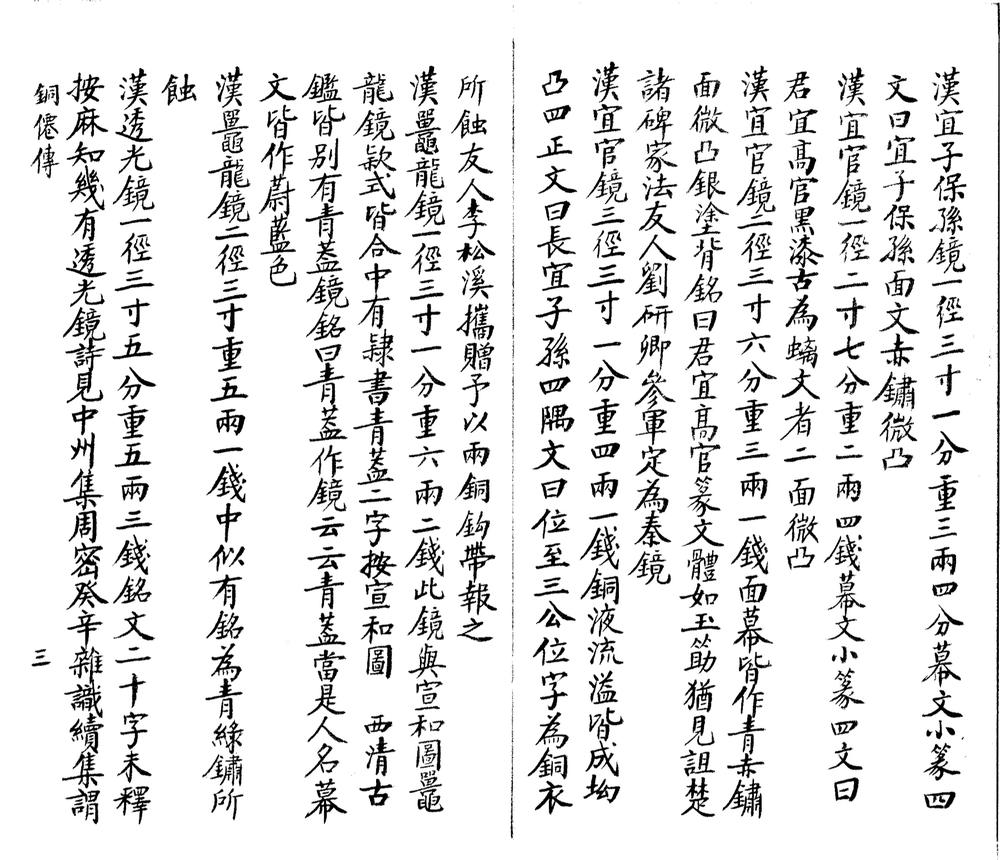 漢宜子保孫鏡一徑三寸一分重三兩四分幕文小篆四
文曰宜子保孫面文赤鏽微凸
漢宜官鏡一徑二寸七分重二兩四錢幕文小篆四文曰
君宜高官黑漆古為螭文者二面微凸
漢宜官鏡二徑三寸六分重三兩一錢面幕皆作青赤鏽
面微凸銀塗背銘曰君宜高官篆文體如玉筯猶見詛楚
諸碑家法友人劉研卿參軍定為秦鏡
漢宜官鏡三徑三寸一分重四兩一錢銅液流溢皆成坳
凸四正文曰長宜子孫四隅文曰位至三公位字為銅衣
所蝕友人李松溪攜贈予以兩銅鉤帶報之
漢鼉龍鏡一徑三寸一分重六兩二錢此鏡與宣和圖鼉
龍鏡款式皆合中有隸書青蓋二字按宣和圖 西清古
鑑皆別有青蓋鏡銘曰青蓋作鏡云云青蓋當是人名幕
文皆作蔚藍色
漢鼉龍鏡二徑三寸重五兩一錢中似有銘為青綠鏽所
蝕
漢透光鏡一徑三寸五分重五兩三錢銘文二十字未釋
按麻知幾有透光鏡詩見中州集周密癸辛雜識續集謂
銅僊傳 三